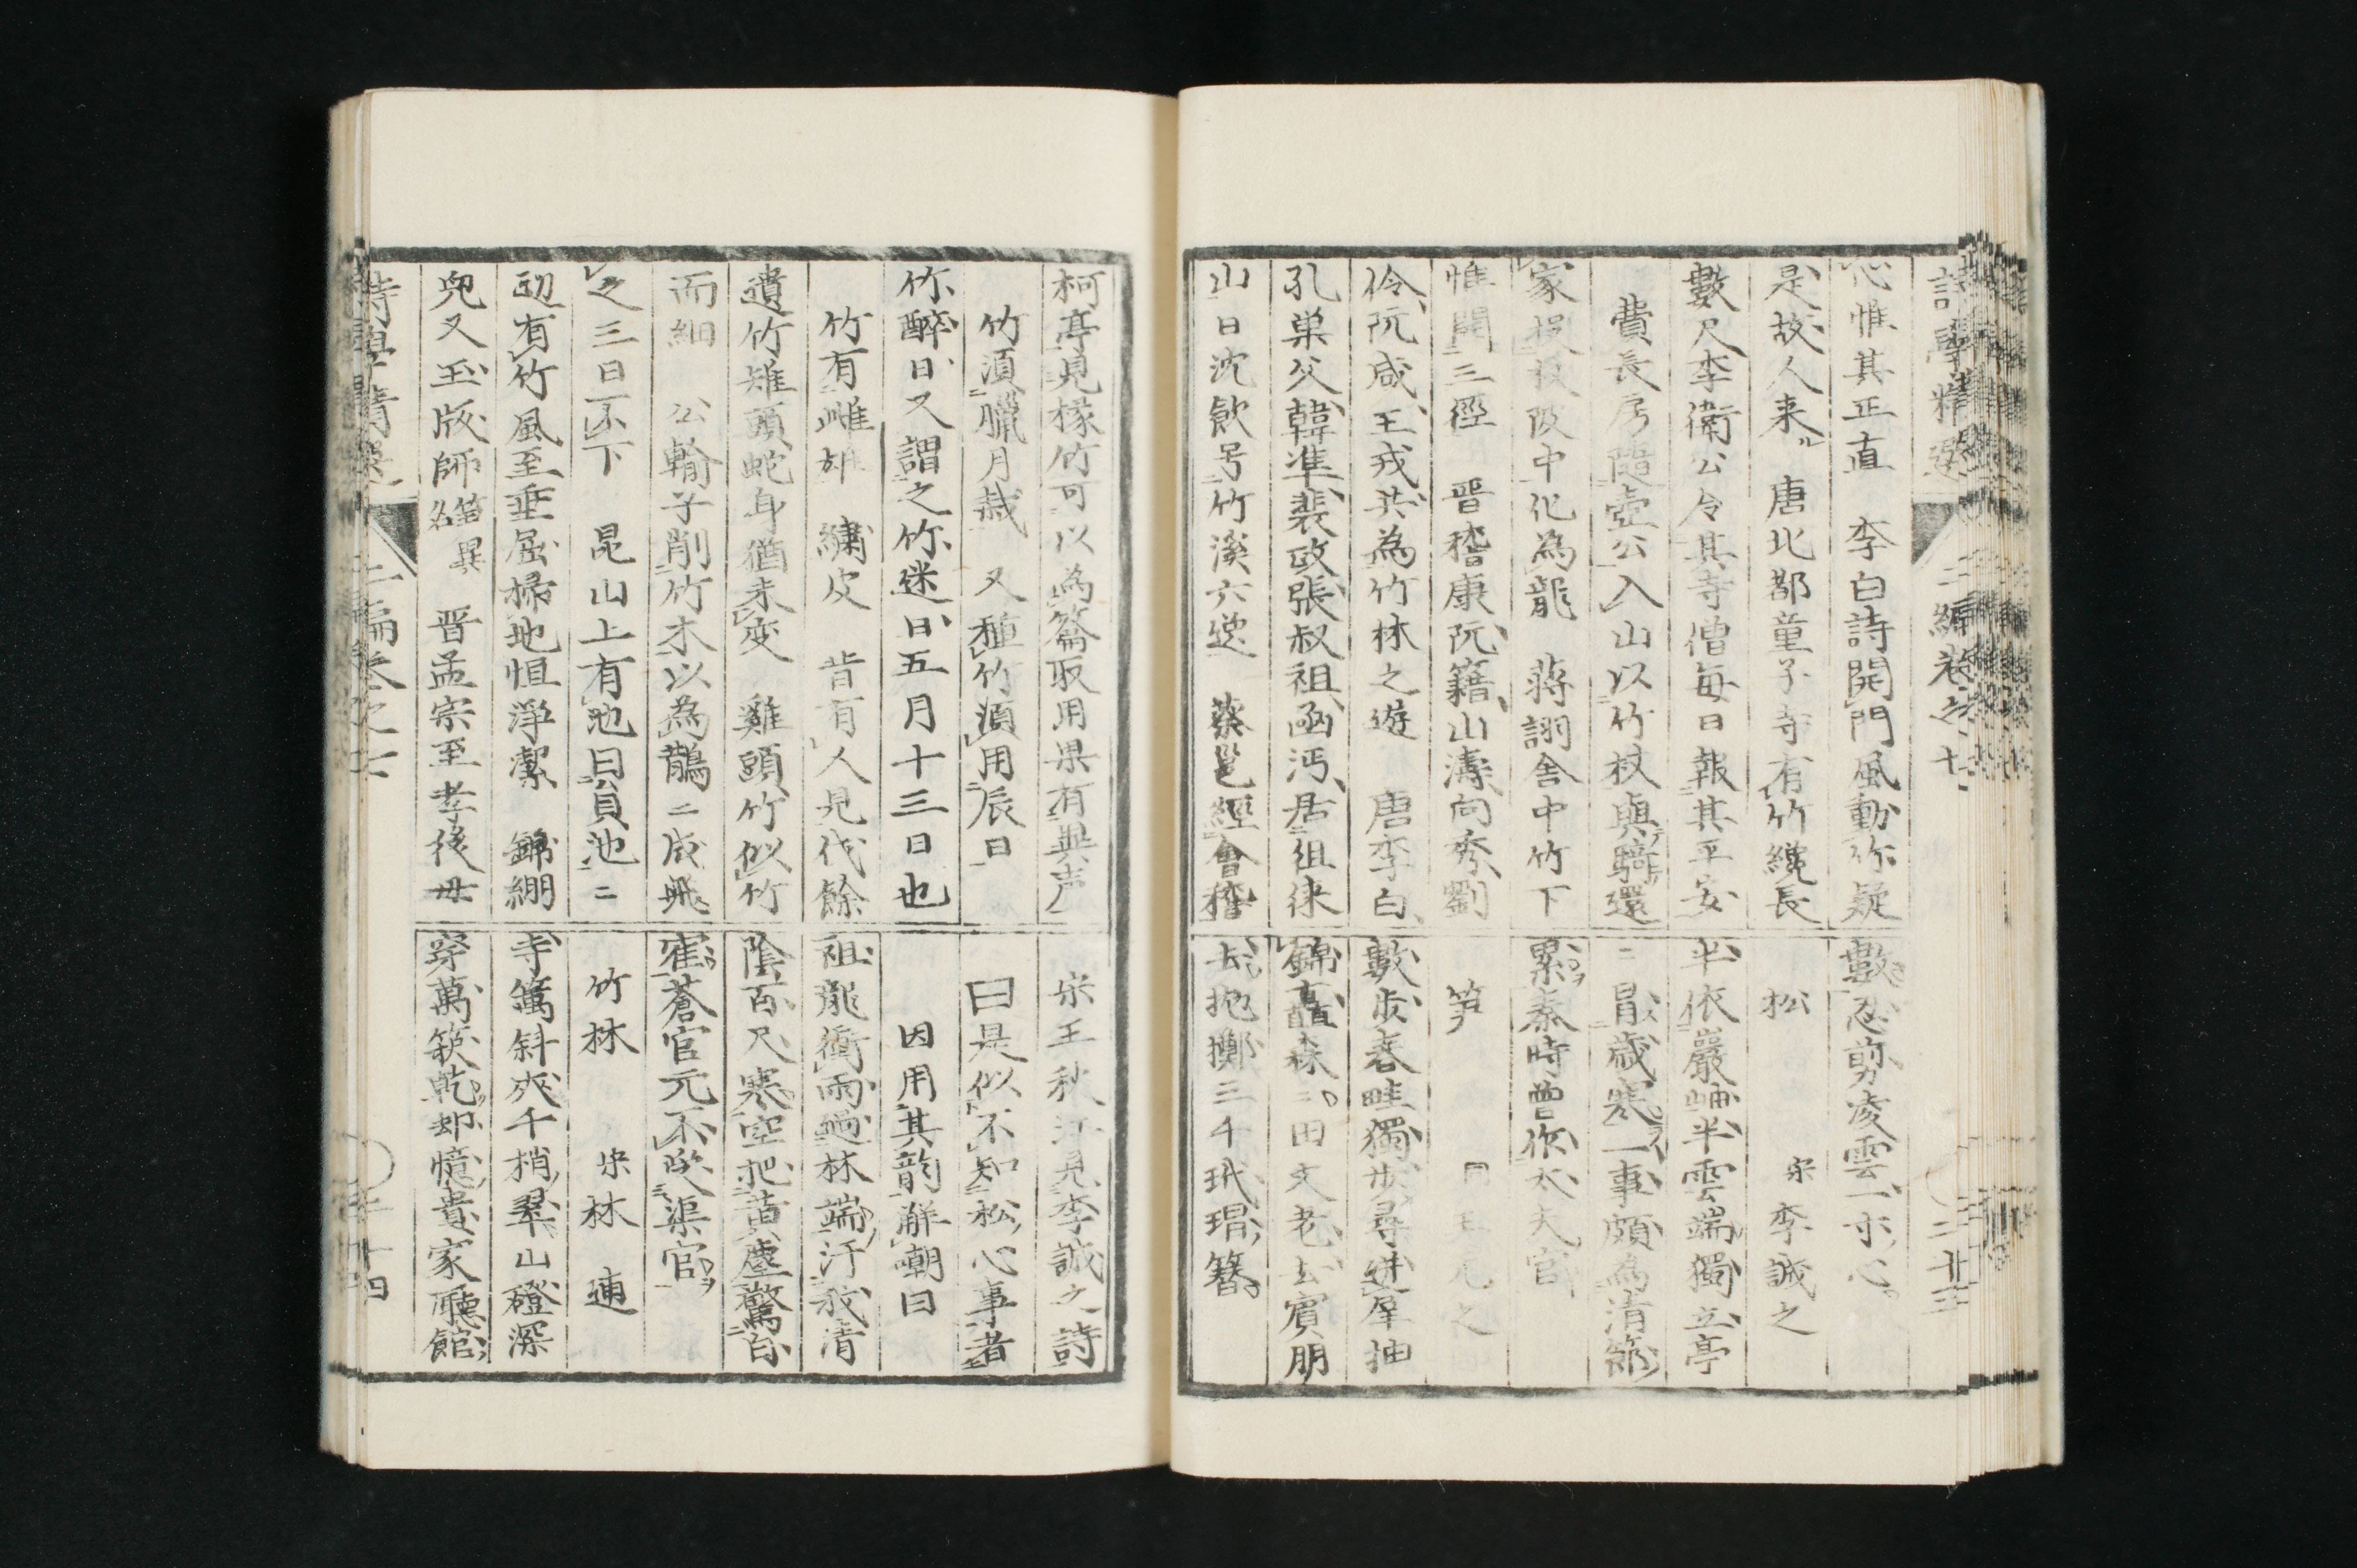 詩學精選 三編卷之十 二廿三
心惟其正直 李白詩開門風動竹疑
是故人来 唐北都童子寺有竹纔長
數尺李衛公令其寺僧每日報其平安
費長房隨壺公入山以竹杖與騎還
家投葛陂中化為龍 蒋詡舍中竹下
惟開三徑 晋嵇康阮籍山濤向秀劉
伶阮咸王戎共為竹林之遊 唐李白
孔巢父韓準裴政張叔祖陶沔居徂徠
山日沈飲号竹溪六逸 蔡邕經會稽
數忍剪凌雲一寸心
松 宋 李誠之
半依巖岫半雲端獨立亭
〻耐歳寒一事頗為清節
累秦時曽作大夫官
笋 同 王元之
數歩春畦獨歩尋迸犀抽
錦矗森〻田文老去賓朋
去抛擲三千玳瑁簪
柯亭見椽竹可以為笛取用果有異声
竹須臘月栽 又種竹須用辰日
竹醉日又謂之竹迷日五月十三日也
竹有雌雄 繡皮 昔有人見伐餘
遺竹雉頭蛇身猶未変 雞頭竹似竹
而細 公輸子削竹木以為鵲〻成飛
之三日不下 昆山上有池曰員池〻
辺有竹風至垂屈掃地恒浄潔 錦綳
兒又玉版師笛異名 晋孟宗至孝後母
宋王秋江見李誠之詩
曰是似不知松心事者
因用其韵解嘲曰
祖龍衝雨過林端汙我清
陰百尺寒空把黄塵驚百
雀蒼官元不跂渠官
竹林 宋林 逋
寺篱斜夾千梢翠山磴深
穿萬筴乾却憶貴家廳館
詩學精選 三編卷之十 二十四